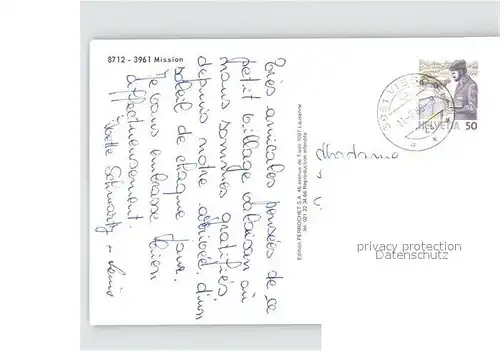 8712 - 3961 Mission
Très amicales pensées de ce
petit village valaisan où
nous sommes gratifiés
depuis notre arrivée d'un
soleil de chaque jour.
Je vous embrasse bien
affectueusement.
Schwartz
Edition PERROCHET S.A. 46 avenue de Tivoli 1007 Lausanne
tél. 021 22 34 66 Reproduction interdite
3961 VIS
HELVETIA 50
Madame
privacy protection
Datenschutz